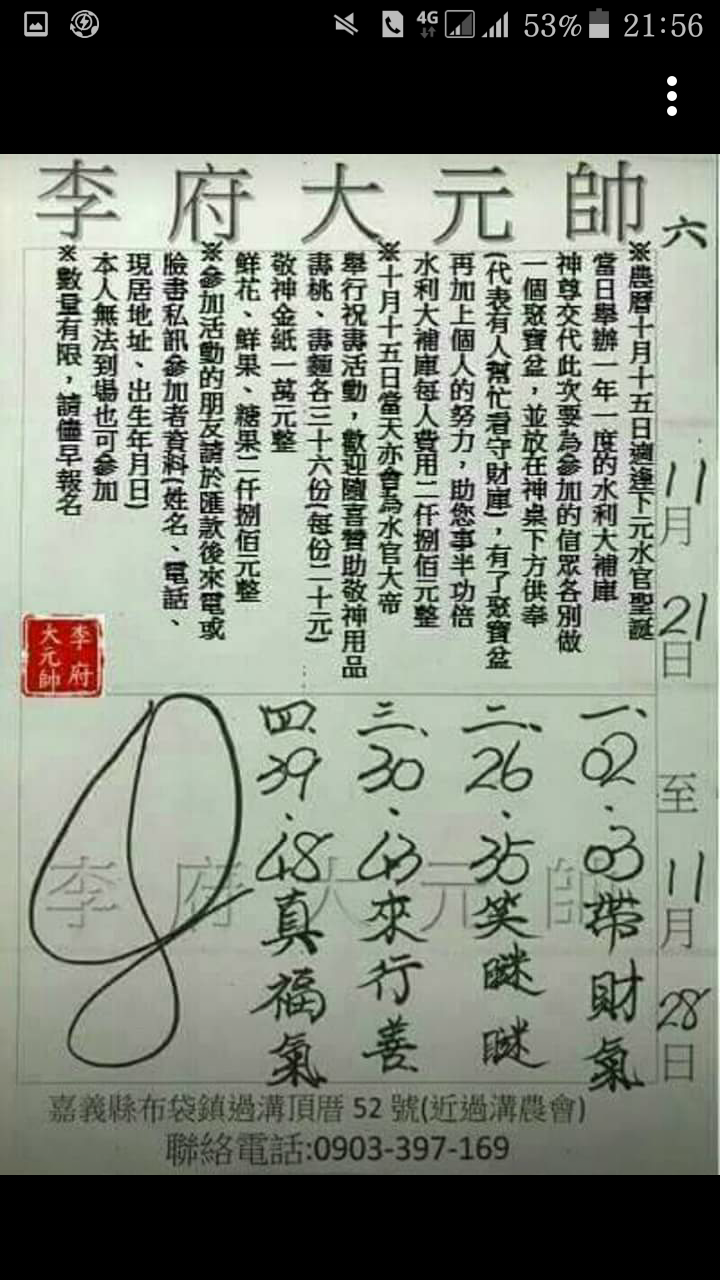 4G 53% 21:56
李府大元帥
六
11月21日至11月28日
※農曆十月十五日適逢下元水官聖誕
當日舉辦一年一度的水利大補庫
神尊交代此次要為參加的信眾各別做
一個聚寶盆，並放在神桌下方供奉
(代表有人幫忙看守財庫)，有了聚寶盆
再加上個人的努力，助您事半功倍
水利大補庫每人費用二仟捌佰元整
※十月十五日當天亦會為水官大帝
舉行祝壽活動，歡迎隨喜贊助敬神用品
壽桃、壽麵各三十六份(每份二十元)
敬神金紙一萬元整
鮮花、鮮果、糖果二仟捌佰元整
※參加活動的朋友請於匯款後來電或
臉書私訊參加者資料(姓名、電話、
現居地址、出生年月日)
本人無法到場也可參加
※數量有限，請儘早報名
李府
大元帥
一、02.03帶財氣
二、26.35笑瞇瞇
三、30.43來行善
四、39.48真福氣
李府大元帥
嘉義縣布袋鎮過溝頂厝 52 號(近過溝農會)
聯絡電話:0903-397-169